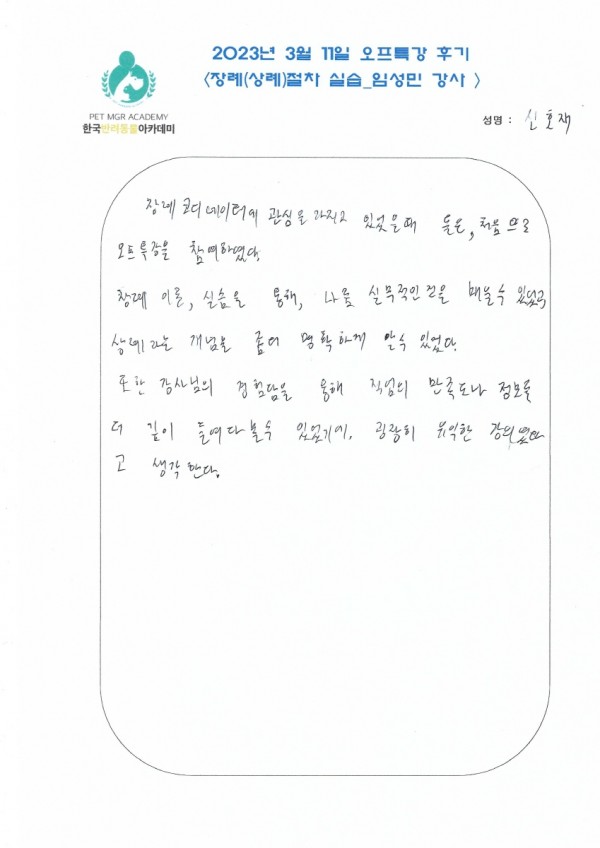 2023년 3월 11일 오프특강 후기
<장례(상례)절차 실습_임성민 강사 >
PET MGR ACADEMY
한국반려동물아카데미
성명 : 신호재
장례 코디네이터에 관심을 가지고 있었을때 들은, 처음으로
오프특강을 참여하였다.
장례 이론, 실습을 통해, 나름 실무적인것을 배울수 있었고
상례라는 개념을 좀더 명확하게 알수 있었다.
또한 강사님의 경험담을 통해 직업의 만족도나 정보를
더 깊이 들여다볼수 있었기에, 굉장히 유익한 강의였다
고 생각한다.